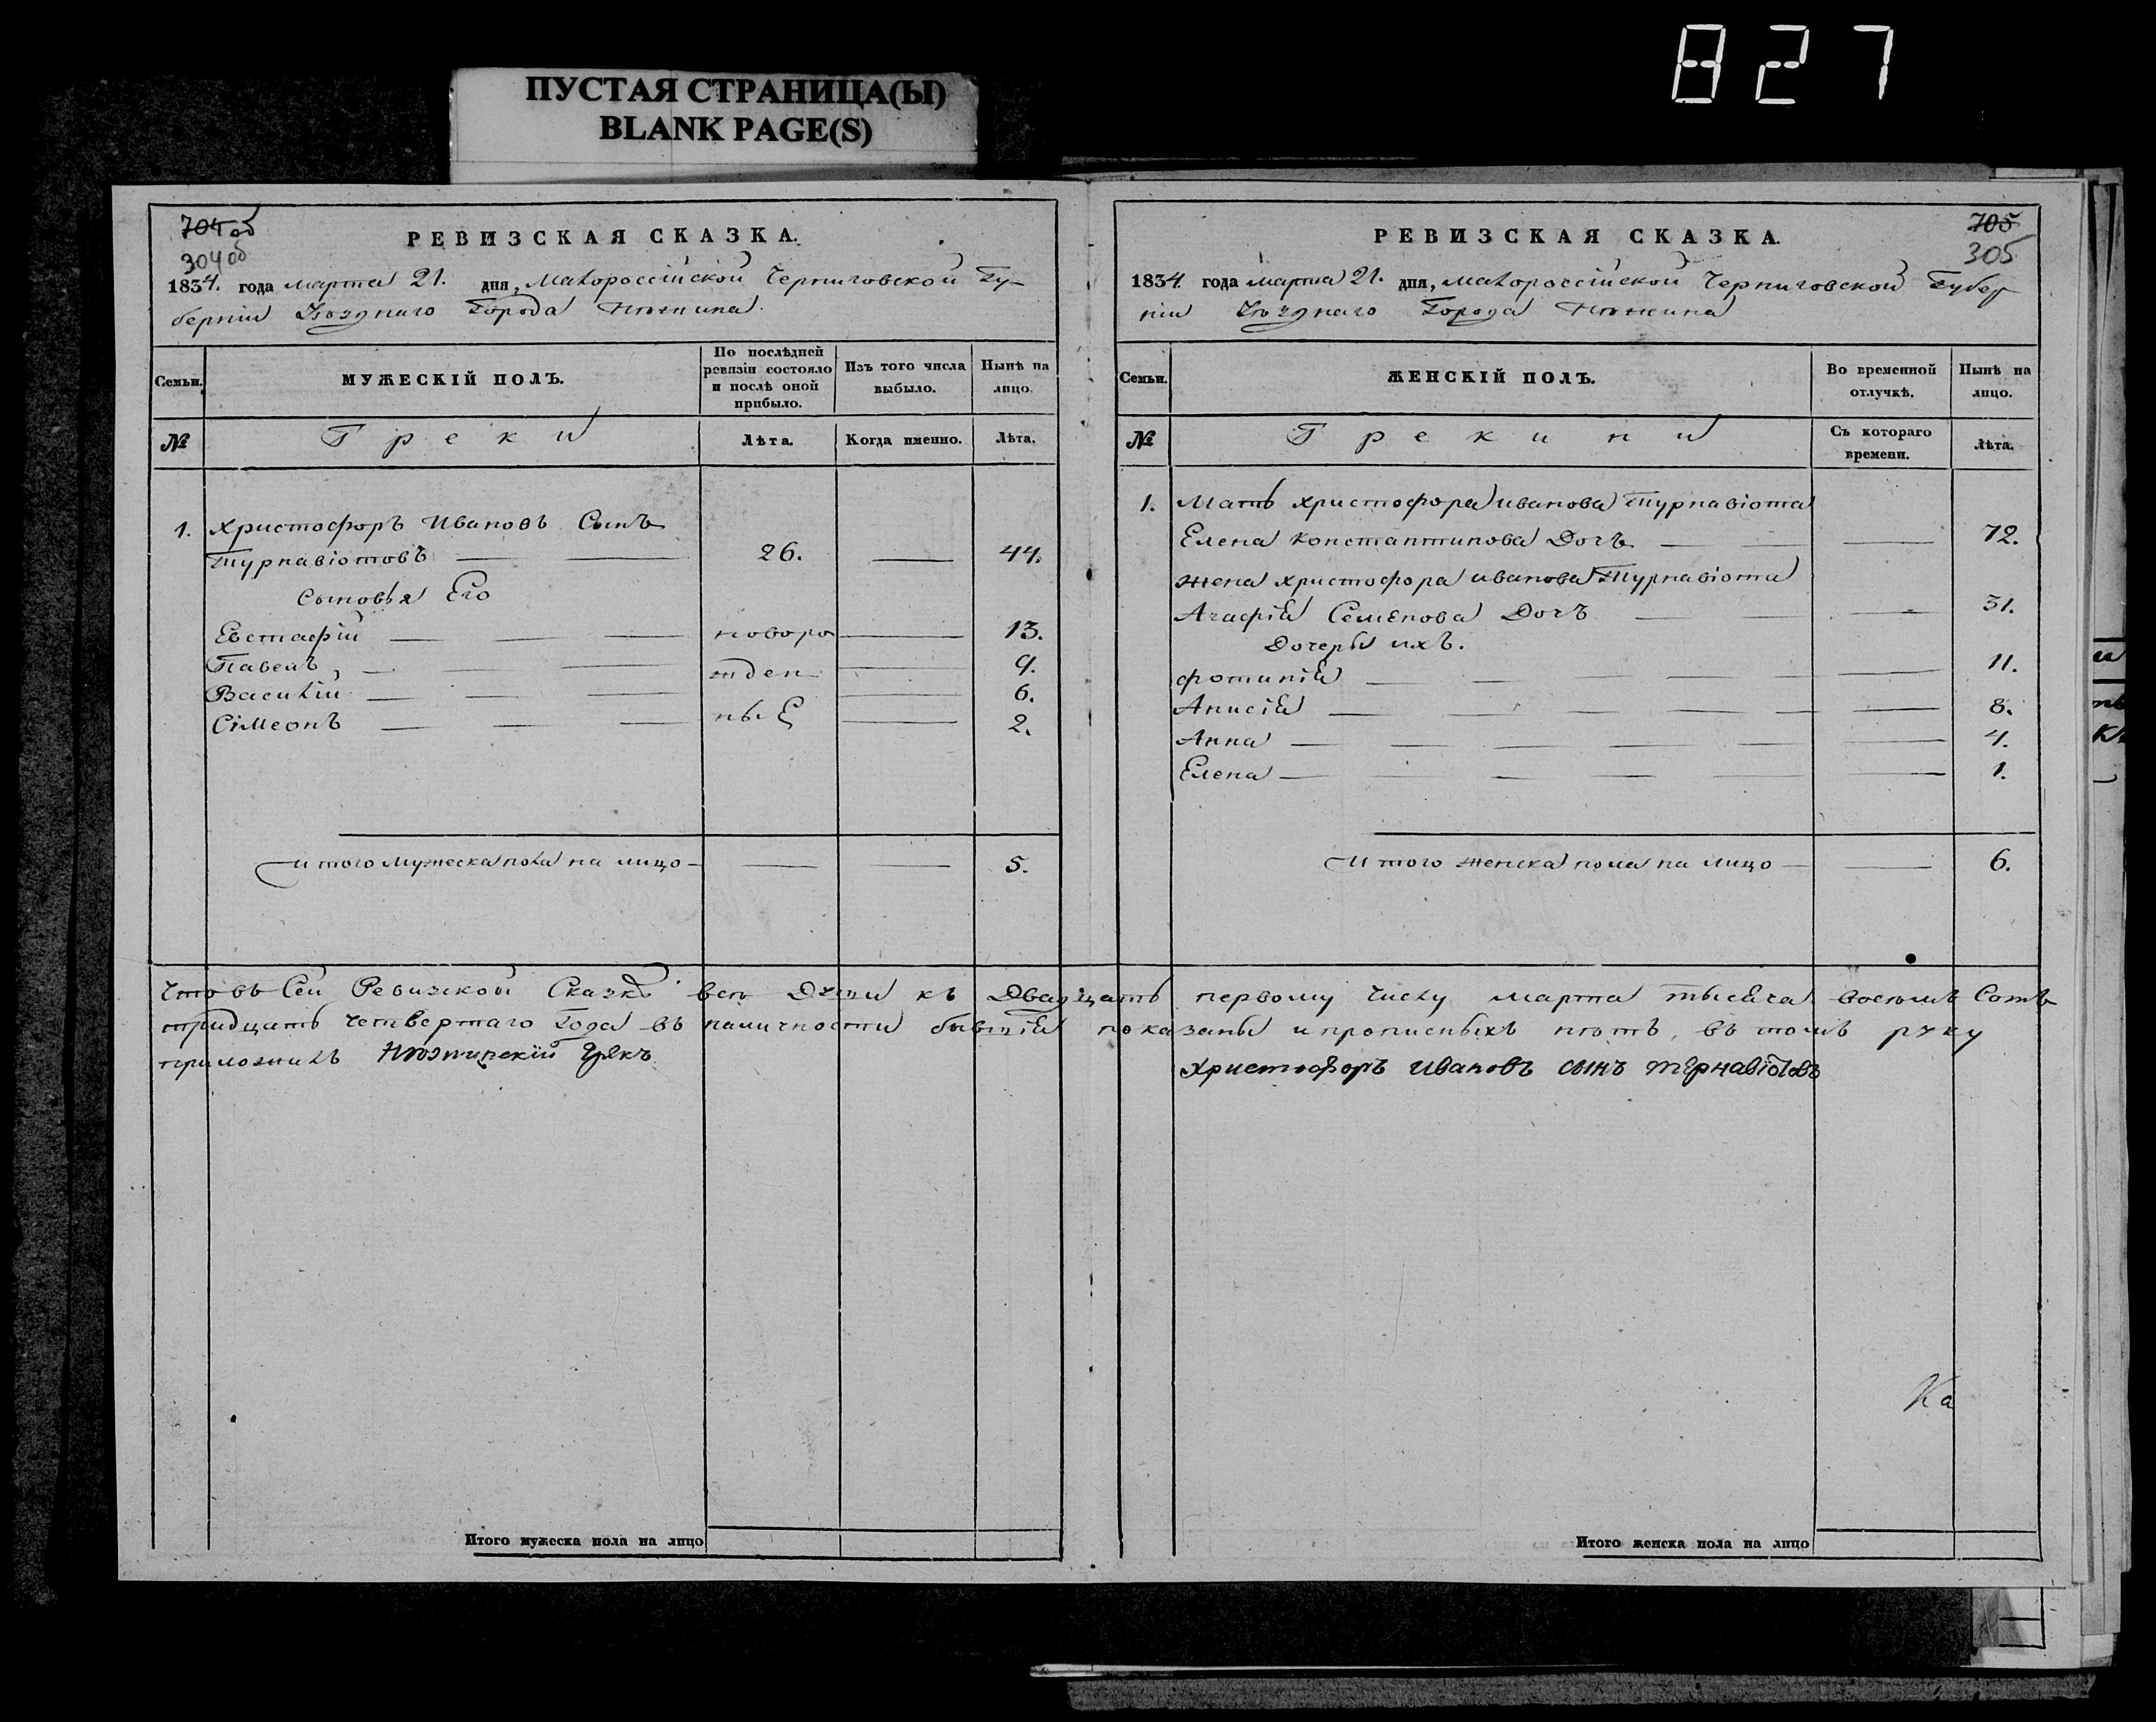 827
ПУСТАЯ СТРАНИЦА(Ы)
BLANK PAGE(S)
704об
304об
РЕВИЗСКАЯ СКАЗКА.
1834. года марта 21. дня, Малороссійской Черниговской Гу-
берніи Уѣзднаго Города Нѣжина.
Семьи.
МУЖЕСКІЙ ПОЛЪ.
По послѣдней ревизіи состояло и послѣ оной прибыло.
Изъ того числа выбыло.
Нынѣ на лицо.
№
Греки
Лѣта.
Когда именно.
Лѣта.
1. Христофоръ Ивановъ Сынъ
Турнавіотовъ — 26. — 44.
Сыновья Его
Евстафій — новоро — 13.
Павелъ — жден — 9.
Василій — — 6.
Сімеонъ — ныЕ — 2.
Итого Мужеска пола на лицо — — — 5.
705
305
РЕВИЗСКАЯ СКАЗКА.
1834. года Марта 21. дня, Малороссійской Черниговской Губер
ніи Уѣзднаго Города Нѣжина
Семьи.
ЖЕНСКІЙ ПОЛЪ.
Во временной отлучкѣ.
Нынѣ на лицо.
№
Грекини
Съ котораго времени.
Лѣта.
1. Мать Христофора Иванова Турнавіота
Елена Константинова Дочъ — — 72.
Жена Христофора Иванова Турнавіота
Агафія Семенова Дочъ — — 31.
Дочеры ихъ.
Фотинія — — 11.
Анисія — — 8.
Анна — — 4.
Елена — — 1.
Итого женска пола на лицо — — 6.
Что въ Сей Ревизской Сказкѣ всѣ Души къ Двадцать первому Числу марта тысяча восемъ Сотъ
тридцать Четвертаго Года въ наличности бывшіе показаны и прописныхъ нѣтъ, въ томъ руку
приложилъ Нѣжинскій Грекъ Христофоръ Ивановъ сынъ Турнавіотовъ
Ка
Итого мужеска пола на лицо
Итого женска пола на лицо